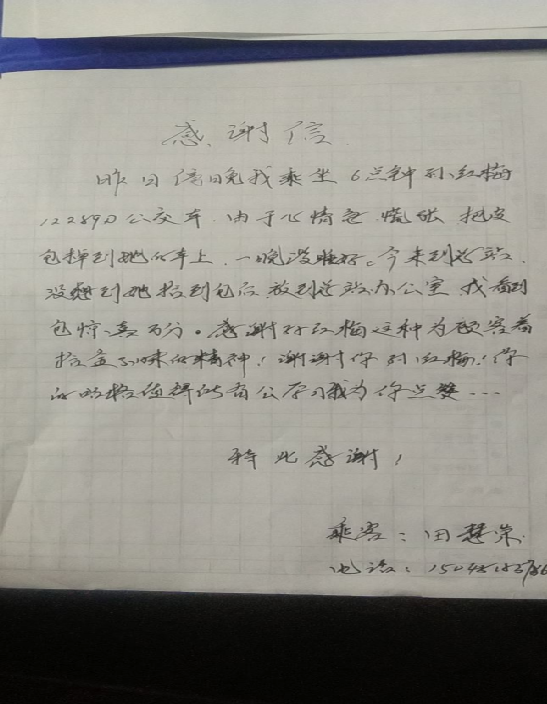 感谢信
昨日傍晚我乘坐6点钟孙红梅
12289D公交车.由于心情急慌张把皮
包掉到她的车上.一晚没睡好。今来到总站
没想到她拾到包后放到总站办公室.我看到
包惊喜万分.感谢孙红梅这种为顾客着
拾金不昧的精神!谢谢你孙红梅!你
的 值得所有公 学习我为你点赞...
特此感谢!
乘客:田慧荣
电话: